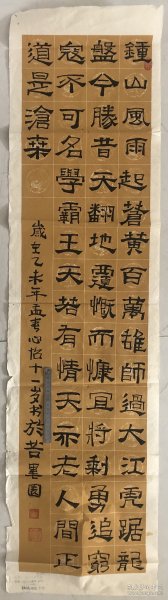 鍾山風雨起蒼黄百萬雄師過大江虎踞龍
盤今勝昔天翻地覆慨而慷宜將剩勇追窮
寇不可名學霸王天若有情天亦老人間正
道是滄桑
歲在乙未年孟春心怡十一岁书於若墨園